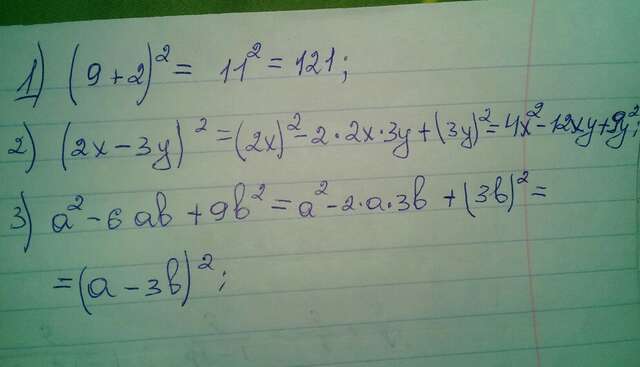 1) (9+2)² = 11² = 121;
2) (2x-3y)² = (2x)² - 2·2x·3y + (3y)² = 4x² - 12xy + 9y²;
3) a² - 6ab + 9b² = a² - 2·a·3b + (3b)² =
= (a - 3b)²;